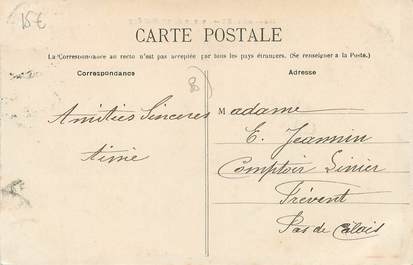 15€
CARTE POSTALE
La Correspondance au recto n'est pas acceptée par tous les pays étrangers. (Se renseigner à la Poste.)
Correspondance
Adresse
8
Amitiés Sincères
Aimé
Madame
E. Jeannin
Comptoir Linier
Frévent
Pas de Calais